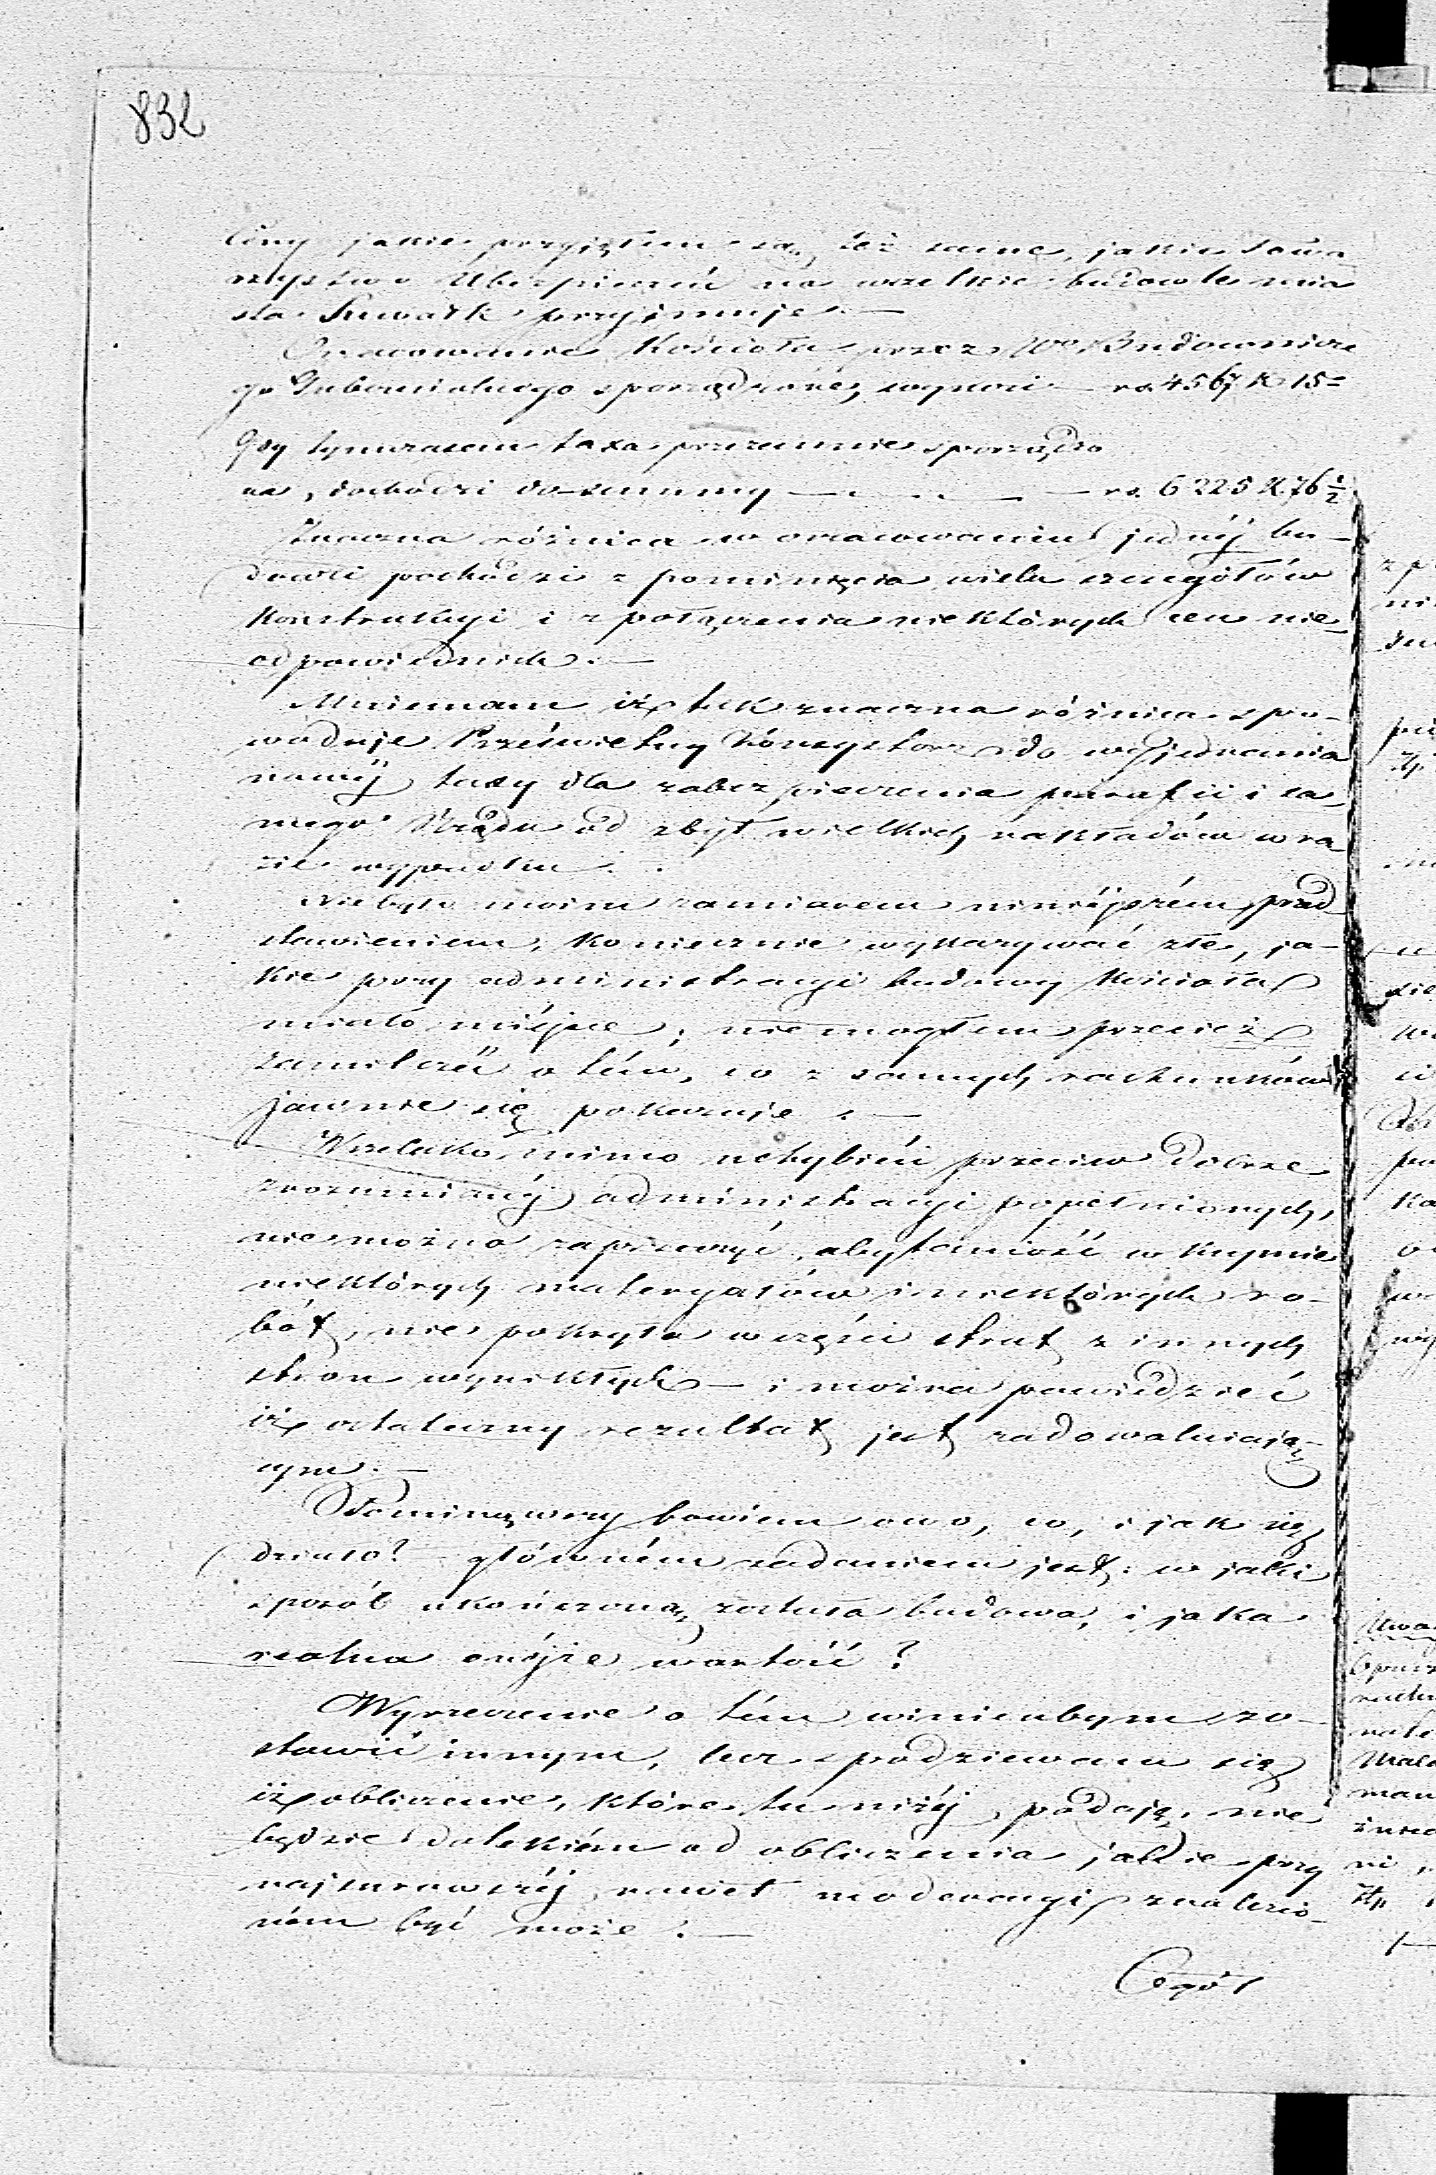 832
Ceny jakie przyjąłem są też same, jakie Towa
rzystwo Ubezpieczeń na wszelkie budowle mia
sta Suwałk przyjmuje.—
Oszacowanie Kościoła przez Wo Budownicze
go Gubernialnego sporządzone, wynosi — rs. 4567 K 15=
gdy tymczasem taxa przezemnie sporządzo
na, dochodzi do summy — — — rs. 6225 K. 76 1/2
Znaczna różnica w oszacowaniu jednéj bu-
dowli pochodzi z pominięcia wielu szczegółów
Konstrukcyi i z połączenia niektórych cen nie
odpowiednich.—
Mniemam iż tak znaczna różnica spo-
woduje Prześwietny Konsystorz do wyjednania
nowéj taxy dla zabezpieczenia parafii i sa-
mego Rządu od zbyt wielkich nakładów w ra
zie wypadku.
Niebyło moim zamiarem niniejszém przed
stawieniem, koniecznie wykazywać złe, ja-
kie przy administracyi budowy Kościoła
miało miéjsce; nie mogłem przecież
zamilczéć o tém, co z samych rachunków
jawnie się pokazuje.—
Wszelako mimo uchybień przeciw dobrze
zrozumianéj administracyi popełnionych,
nie można zaprzeczyć, aby taniość w kupnie
niektórych materyałów i niektórych ro-
bót, nie pokryła w części strat z innych
stron wynikłych — i można powiedzieć
iż ostateczny rezultat jest zadowalniają-
cym.—
Pominąwszy bowiem owo, co, i jak się
działo? główném zadaniem jest: w jaki
sposób ukończoną została budowa, i jaka
realna onéjże wartość?
Wyrzeczenie o tém winienbym zo-
stawić innym, lecz spodziewam się
iż obliczenie, które tu niżéj podaję, nie
będzie dalekiém od obliczenia jakie przy
najsurowszéj nawet moderacyi znalezio-
ném być może.—
Ogół